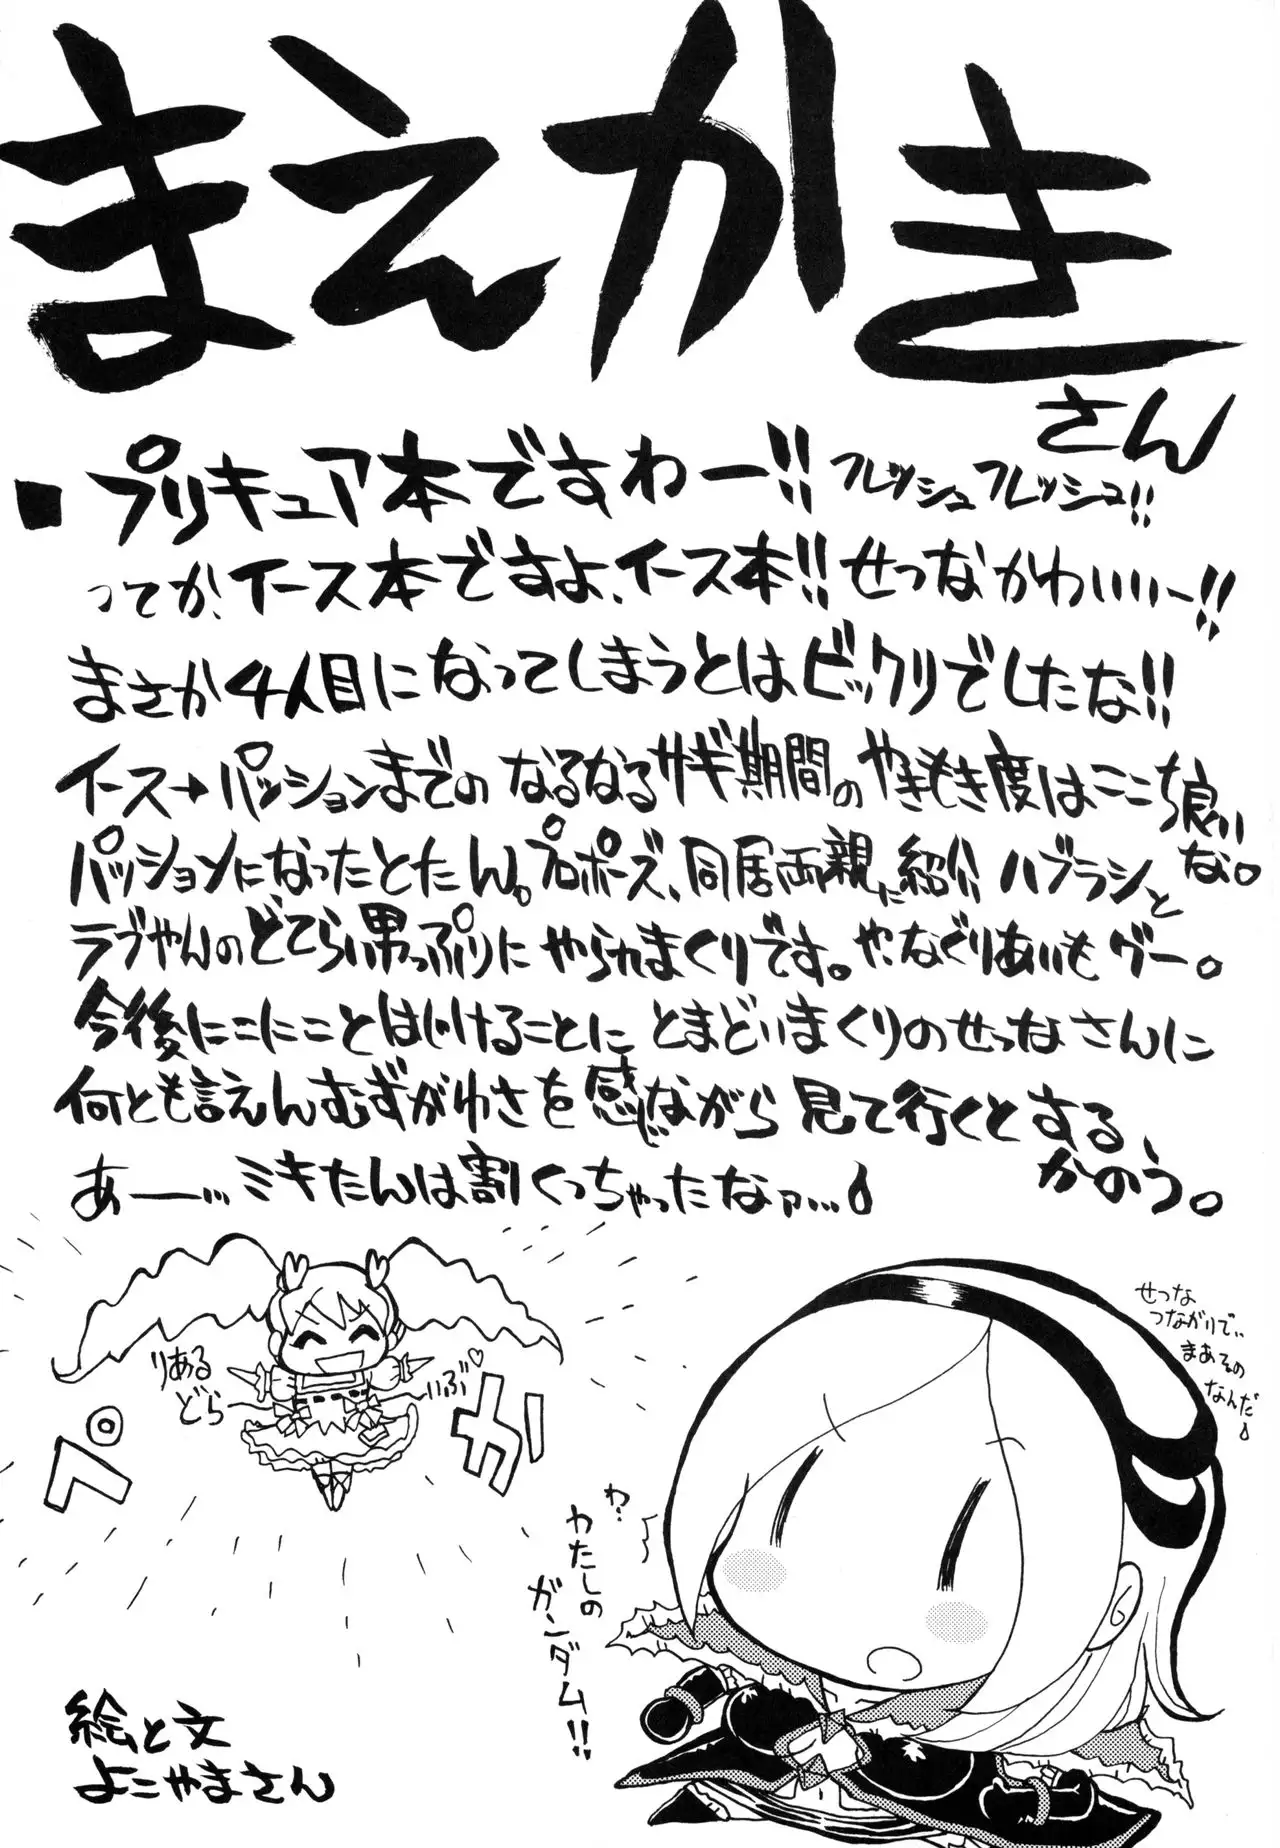 まえかき
さん
■プリキュア本ですわー!! フレッシュフレッシュ!!
ってか、イース本ですよ、イース本!! せつなかわいいー!!
まさか4人目になってしまうとはビックリでしたな!!
イース→パッションまでのなるなるサギ期間のやきもき度はここち良いな。
パッションになったとたん。プロポーズ、同居両親に紹介ハブラシと
ラブやんのどてらい男っぷりにやられまくりです。や、なぐりあいもグー。
今後にこにことはじけることにとまどいまくりのせつなさんに
何とも言えんむずがゆさを感じながら見て行くとする、
かのう。
あー…ミキたんは割くっちゃったなァ…
りある
どら
いぶ♡
ペ
カ
せつな
つながりで…
まあその
なんだ
わ?
わたしの
ガンダム!!
絵と文
よこやまさん